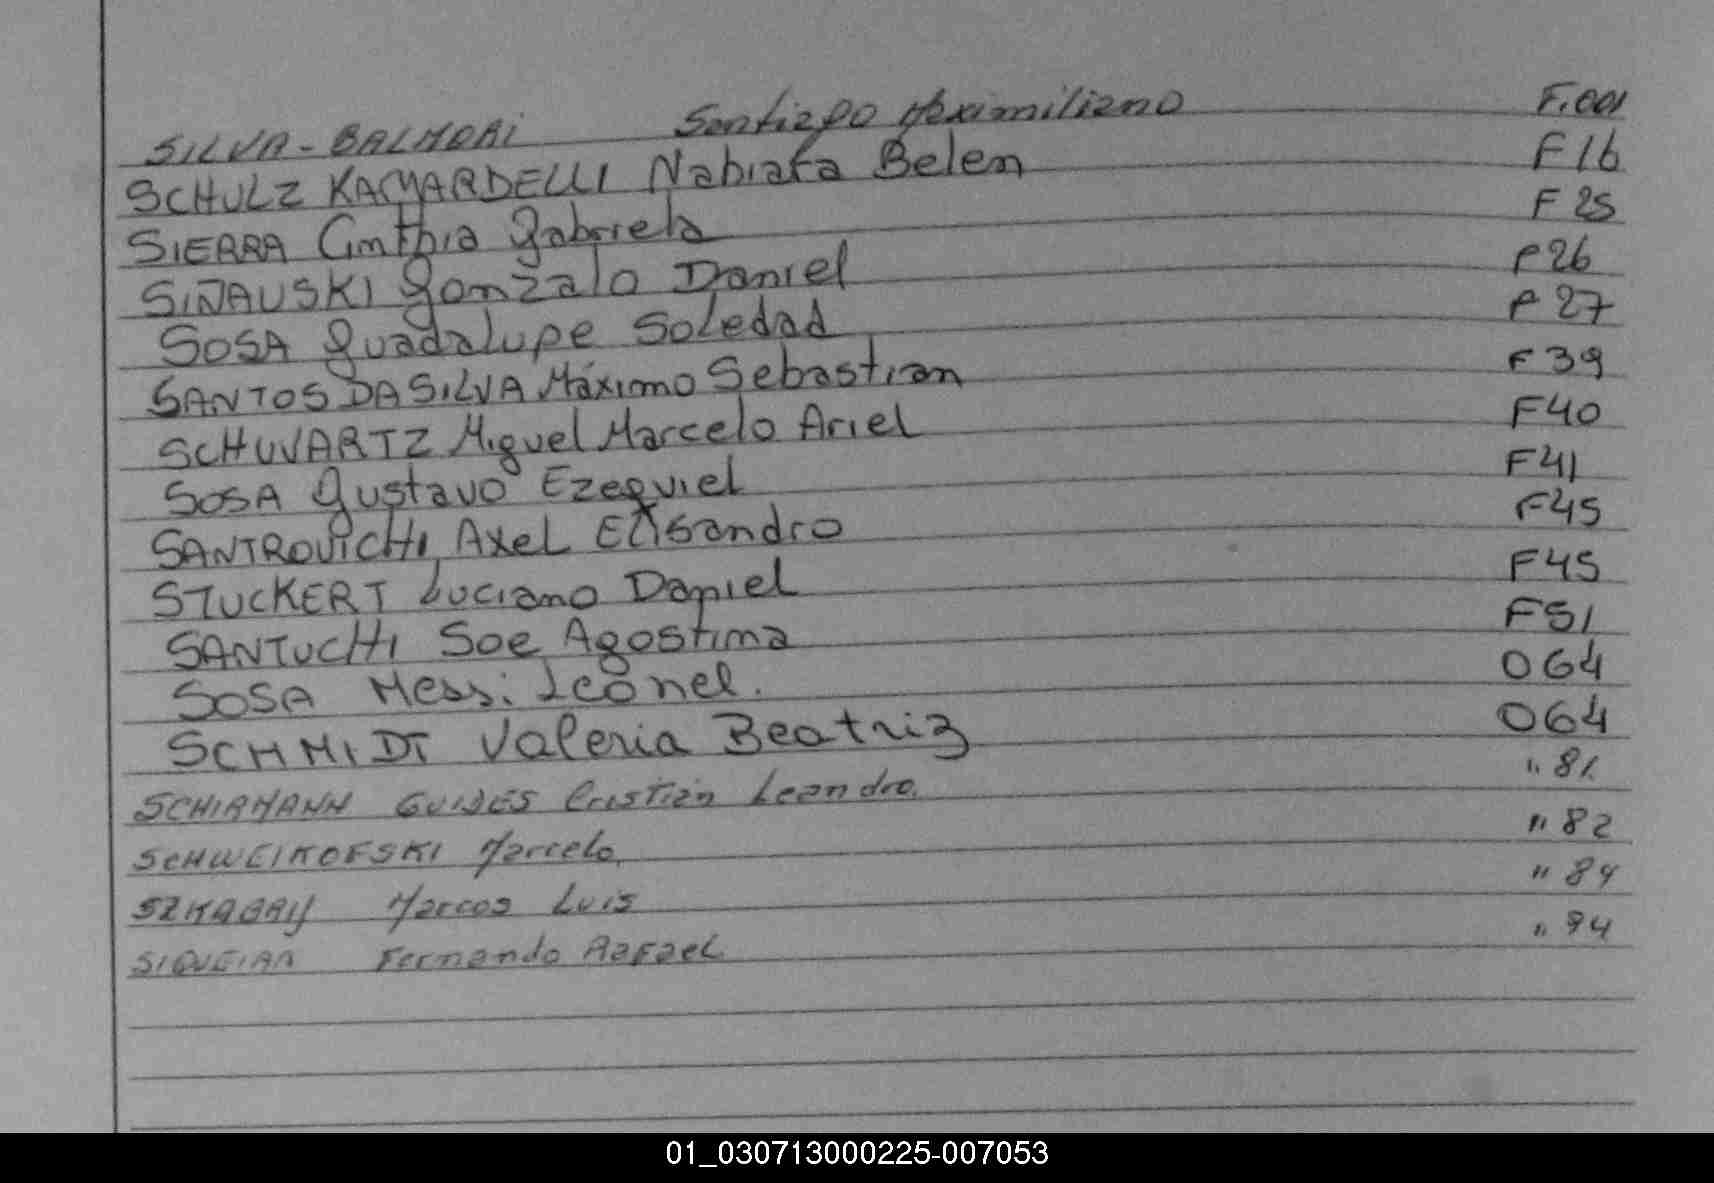 SILVA - BALMORI Santiago Maximiliano F.001
SCHULZ KAMARDELLI Nabiata Belen F16
SIERRA Cinthia Gabriela F 25
SIÑAUSKI Gonzalo Daniel F26
SOSA Guadalupe Soledad F 27
SANTOS DA SILVA Máximo Sebastian F 39
SCHUVARTZ Miguel Marcelo Ariel F40
SOSA Gustavo Ezequiel F41
SANTROVICHI Axel Elisandro F45
STUCKERT Luciano Daniel F45
SANTUCHI Soe Agostina F51
SOSA Messi Leonel. 064
SCHMIDT Valeria Beatriz 064
SCHIRMANN GUIDES Cristian Leandro. " 81
SCHWEIKOFSKI Marcelo. " 82
Marcos Luis " 84
SIQUEIRA Fernando Rafael " 94
01_030713000225-007053